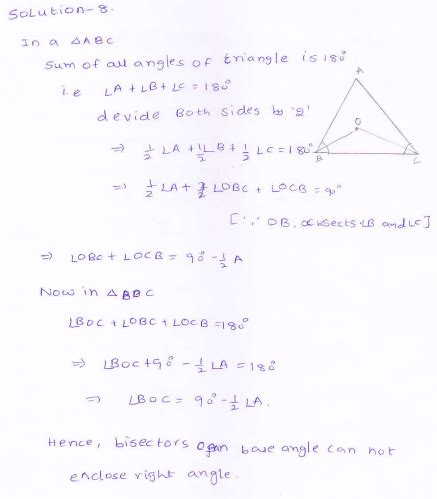 Solution-8.
In a △ABC
Sum of all angles of triangle is 180°
i.e ∠A + ∠B + ∠C = 180°
devide Both sides by '2'
⇒ 1/2 ∠A + 1/2 ∠B + 1/2 ∠C = 180°
⇒ 1/2 ∠A + ∠OBC + ∠OCB = 90°
[∵ OB, OC bisects ∠B and ∠C]
⇒ ∠OBC + ∠OCB = 90° - 1/2 A
Now in △BBC
∠BOC + ∠OBC + ∠OCB = 180°
⇒ ∠BOC + 90° - 1/2 ∠A = 180°
⇒ ∠BOC = 90° - 1/2 ∠A.
Hence, bisectors base angle can not
enclose right angle.
A
O
B
C